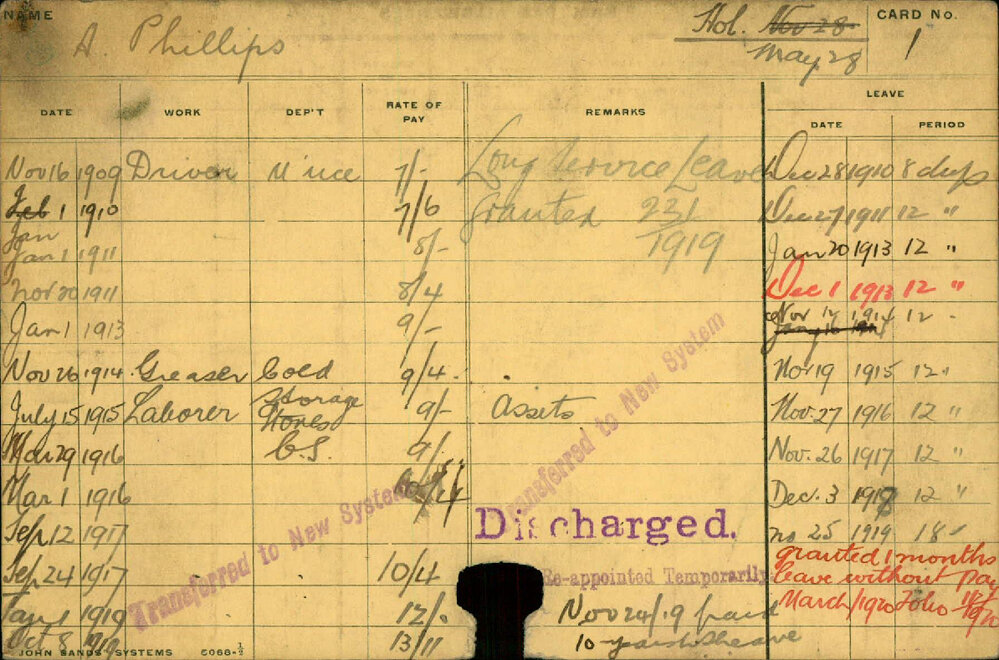 NAME
A. Phillips
Hol. Nov 28
May 28
CARD No.
1
DATE WORK DEP'T RATE OF PAY REMARKS LEAVE
DATE PERIOD
Nov 16 1909 Driver 7/- Long Service Leave Dec 28 1910 8 days
Feb 1 1910 7/6 granted 231 Dec 27 1911 12 "
Jan
Jan 1 1911 8/- 1919 Jan 20 1913 12 "
Nov 20 1911 8/4 Dec 1 1913 12 "
Jan 1 1913 9/- Nov 1914 12 "
Nov 26 1914 Greaser Cold 9/4. Nov 19 1915 12 "
Storage
July 15 1915 Laborer Stores 9/- Assets Nov. 27 1916 12 "
Mar 29 1916 C.S. 9/- Nov. 26 1917 12 "
Mar 1 1916 Dec. 3 1918 12 "
Sep 12 1917 Discharged. 25 1919 18
granted 1 months
Sep 24 1917 10/4 Re-appointed Temporarily leave without pay
Jan 1 1919 12/- Nov 24/19 paid March/1920 Folio
Oct 8 1919 13/11 10 years
Transferred to New System
Transferred to New System
JOHN SANDS SYSTEMS 5068-½